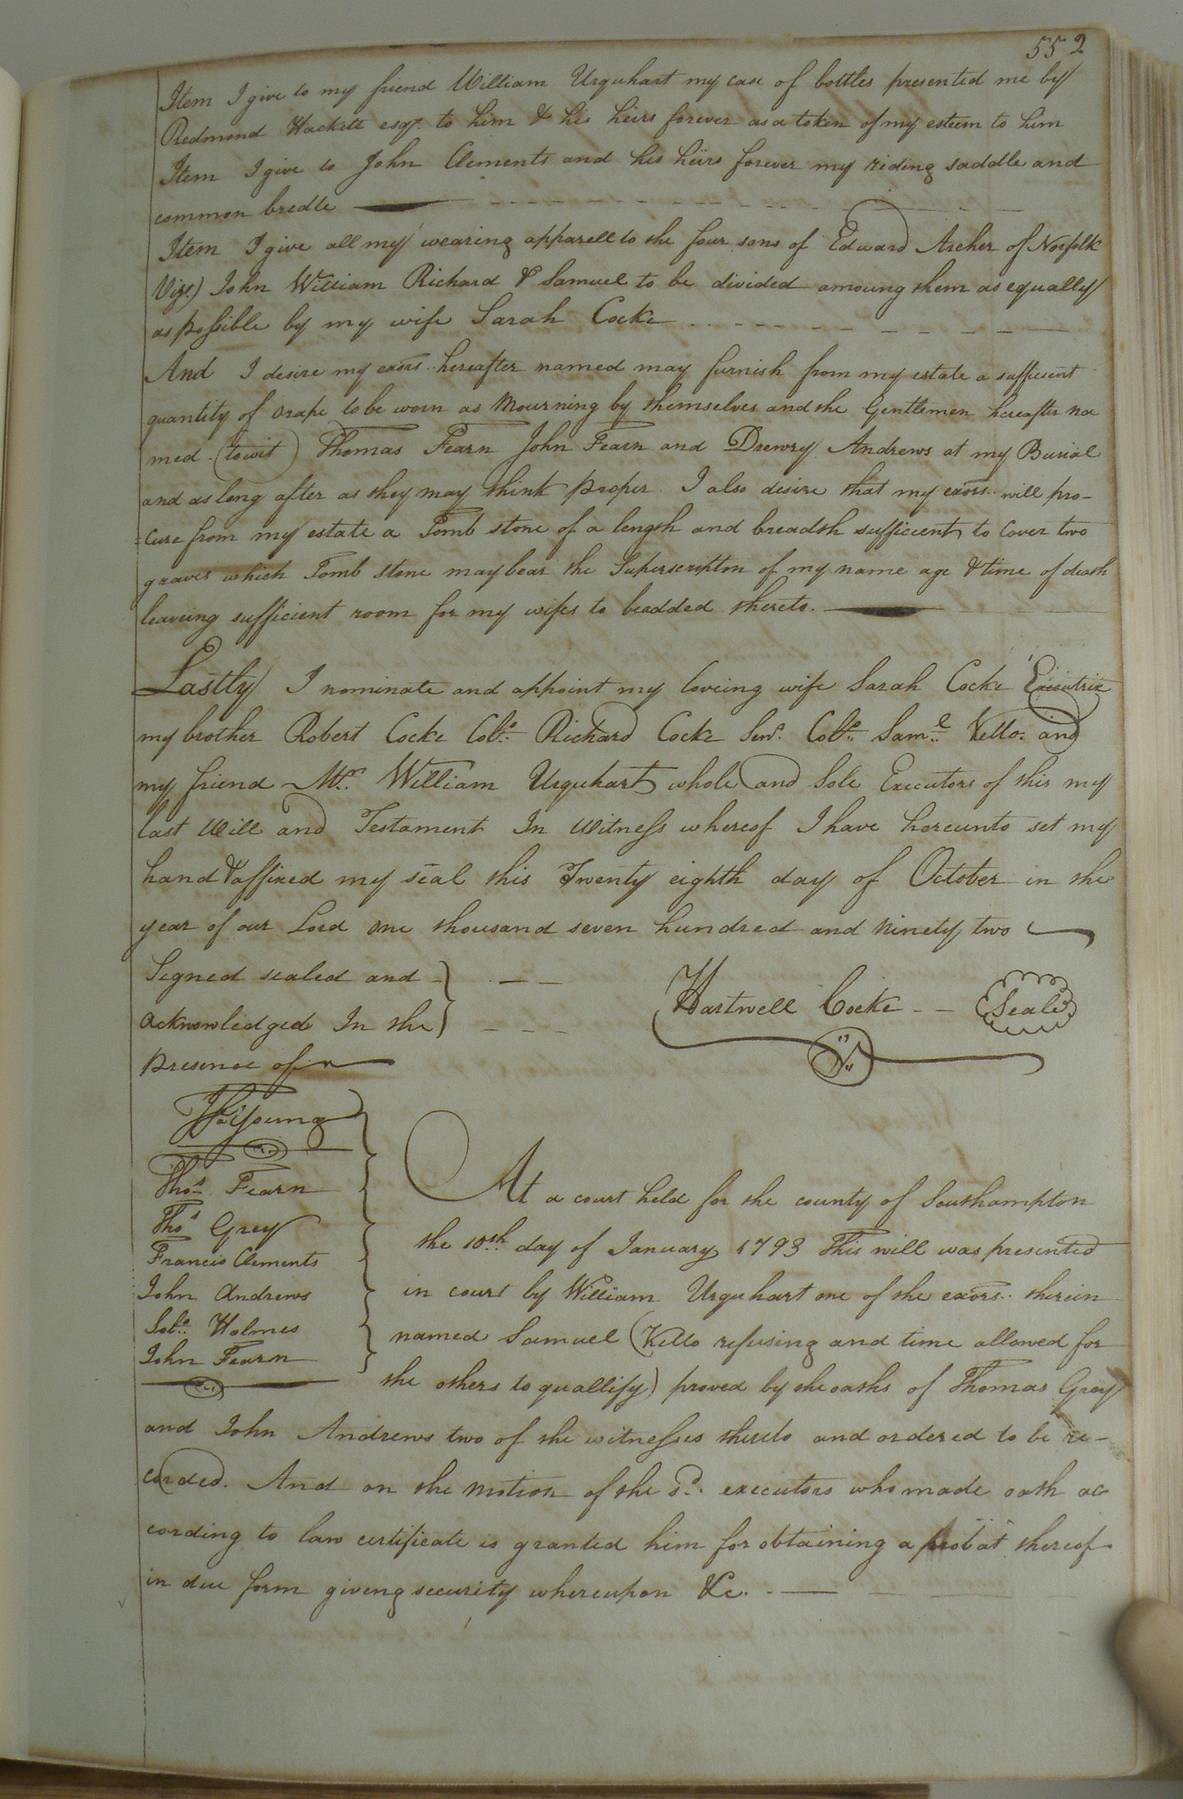 552
Item I give to my friend William Urquhart my case of bottles presented me by
Redmond Hackett esqr. to him & his heirs forever as a token of my esteem to him
Item I give to John Clements and his heirs forever my riding saddle and
common bredle
Item I give all my wearing apparell to the four sons of Edward Archer of Norfolk
Virga) John William Richard & Samuel to be divided amoung them as equally
as possible by my wife Sarah Cocke
And I desire my exors. hereafter named may furnish from my estate a sufficient
quantity of crape to be worn as Mourning by themselves and the Gentlemen hereafter na
med (towit) Thomas Fearn John Fearn and Drewry Andrews at my Burial
and as long after as they may think proper. I also desire that my exors. will pro-
=cure from my estate a Tomb stone of a length and breadth sufficient to cover two
graves which Tomb stone may bear the Superscription of my name age & time of death
leaveing sufficient room for my wifes to beadded thereto.
Lastly I nominate and appoint my loveing wife Sarah Cocke Executrix
my brother Robert Cocke Colo. Richard Cocke Senr. Colo. Saml. Kello. and
my friend Mr. William Urquhart whole and Sole Executors of this my
last Will and Testament In Witness whereof I have hereunto set my
hand & affixed my seal this Twenty eighth day of October in the
year of our Lord one thousand seven hundred and ninety two
Signed sealed and
Hartwell Cocke Seal
acknowledged In the
presence of
Thos. Fearn
Thos Grey
Francis Clements
John Andrews
Holmes
John Fearn
At a court held for the county of Southampton
the 10th. day of January 1793 This will was presented
in court by William Urquhart one of the exors. therein
named Samuel (Kello refusing and time allowed for
the others to quallify) proved by the oaths of Thomas Gray
and John Andrews two of the witnesses thereto and ordered to be re-
corded. And on the motion of the sd. executors who made oath ac
cording to law certificate is granted him for obtaining a probat thereof
in due form giveng security whereupon &c.